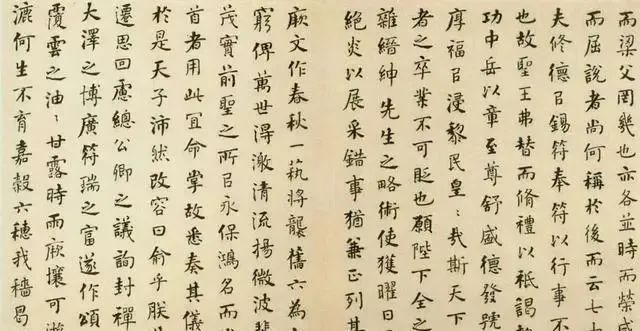 而梁父罔幾也亦各並時而榮咸
而屈說者尚何稱於後而云七
夫修德㠯錫符奉符以行事不
也故聖王弗替而脩禮以祗謁
功中岳以章至尊舒盛德發號
厚福㠯浸黎民皇〻哉斯天下
者之卒業不可貶也願陛下全之
雜縉紳先生之略術使獲曜日
絕炎以展采錯事猶兼正列其
厥文作春秋一藝將襲舊六為
窮俾萬世得激清流揚微波蜚
茂實前聖之所㠯永保鴻名而
首者用此宜命掌故悉奏其儀
於是天子沛然改容曰俞乎朕
遷思回慮總公卿之議詢封禪
大澤之博廣符瑞之富遂作頌
覆雲之油〻甘露時雨厥壤可
漉何生不育嘉穀六穗我穡曷